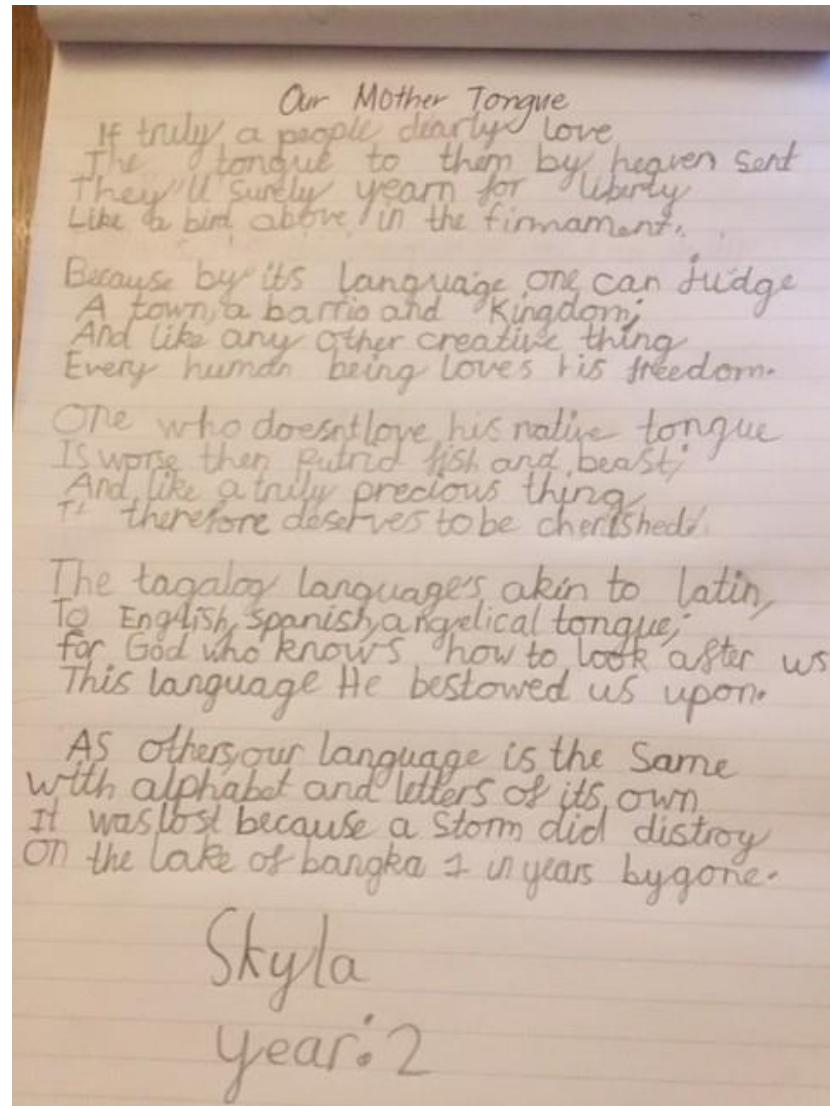 Our Mother Tongue
If truly a people dearly love
The tongue to them by heaven sent
They'll surely yearn for liberty
Like a bird above in the firmament.
Because by its language one can judge
A town, a barrio and Kingdom;
And like any other creative thing
Every human being loves his freedom.
One who doesnt love his native tongue
Is worse then putrid fish and beast;
And like a truly precious thing
It therefore deserves to be cherished.
The tagalog language's akin to latin,
To English, Spanish, angelical tongue;
for God who knows how to look after us
This language He bestowed us upon.
As others, our language is the Same
with alphabet and letters of its own
It was lost because a Storm did distroy
On the lake of bangka 1 in years bygone.
Skyla
year: 2